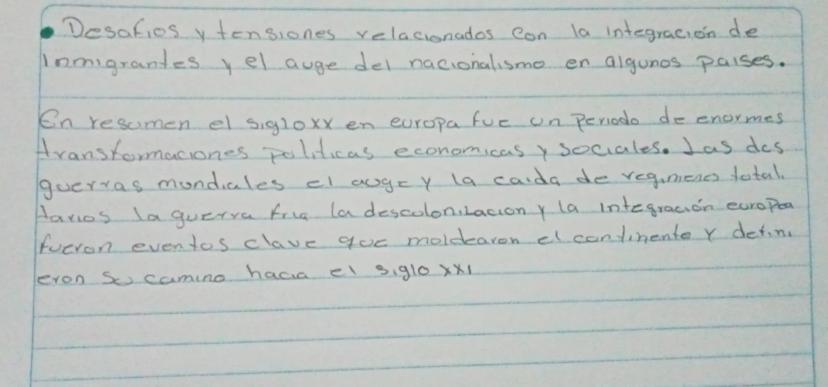 • Desafios y tensiones relacionados con la integración de
inmigrantes y el auge del nacionalismo en algunos paises.
En resumen el siglo xx en europa fue un Periodo de enormes
transformaciones politicas economicas y sociales. Las dos
guerras mundiales el auge y la caida de regimenes total.
tarios la guerra fria la descolonizacion y la integración europea
fueron eventos clave que moldearon el continente y defini
eron su camino hacia el siglo xxi